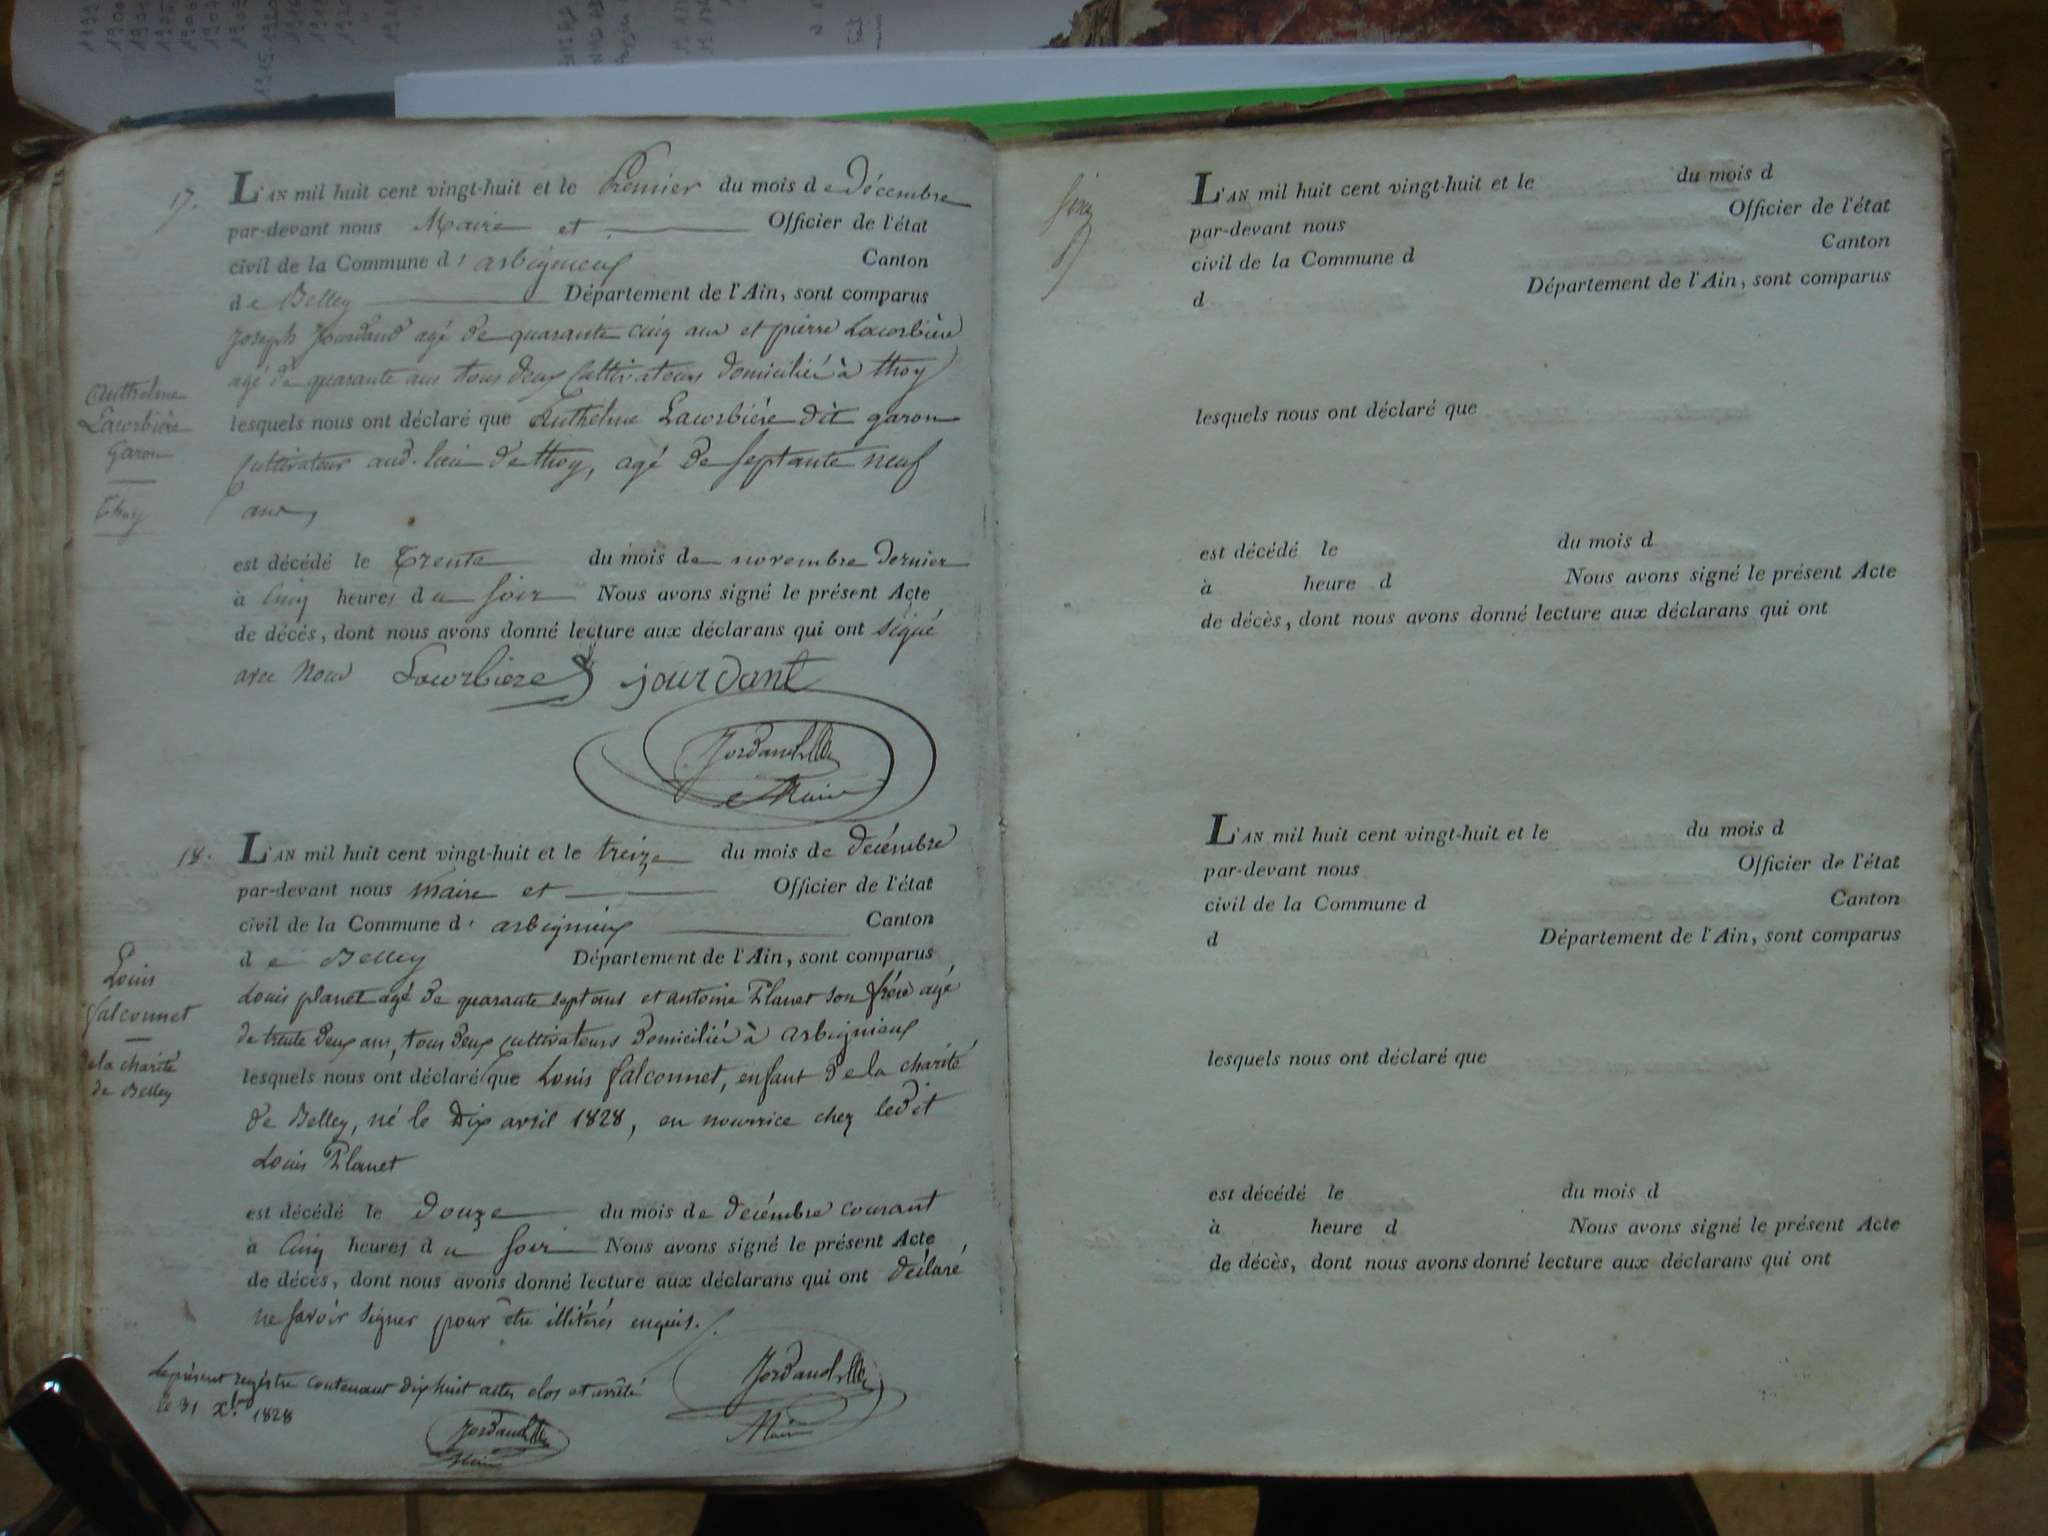 17.
L'AN mil huit cent vingt-huit et le Premier du mois de Décembre
par-devant nous Maire et Officier de l'état
civil de la Commune d'arbignieux Canton
de Belley Département de l'Ain, sont comparus
Joseph Jourdand agé de quarante cinq ans et pierre Lacorbière
agé de quarante ans tous deux Cultivateurs domicilié à thoy
Anthelme
Lacorbière
garon
Thoy
lesquels nous ont déclaré que Anthelme Lacorbière dit garon
Cultivateur aud. lieu de thoy, agé de septante neuf
ans,
est décédé le Trente du mois de novembre dernier
à Cinq heures du soir Nous avons signé le présent Acte
de décès, dont nous avons donné lecture aux déclarans qui ont signé
avec nous Lacorbiere jourdant
Maire
18.
L'AN mil huit cent vingt-huit et le treize du mois de decémbre
par-devant nous maire et Officier de l'état
civil de la Commune d'arbignieux Canton
de Belley Département de l'Ain, sont comparus
Louis planet agé de quarante sept ans et antoine Planet son frère agé
de trente deux ans, tous deux Cultivateurs domicilié à arbignieux
Louis
falconnet
de la charité
de Belley
lesquels nous ont déclaré que Louis falconnet, enfant de la charité
de Belley, né le Dix avril 1828, en nourrice chez ledit
Louis Planet
est décédé le douze du mois de decémbre courant
à Cinq heures du soir Nous avons signé le présent Acte
de décès, dont nous avons donné lecture aux déclarans qui ont déclaré
ne savoir signer pour être illitérés enquis.
le présent registre contenant dix huit actes clos et arrêté
le 31 Xbre 1828
Maire
L'AN mil huit cent vingt-huit et le du mois d
par-devant nous Officier de l'état
civil de la Commune d Canton
d Département de l'Ain, sont comparus
lesquels nous ont déclaré que
est décédé le du mois d
à heure d Nous avons signé le présent Acte
de décès, dont nous avons donné lecture aux déclarans qui ont
L'AN mil huit cent vingt-huit et le du mois d
par-devant nous Officier de l'état
civil de la Commune d Canton
d Département de l'Ain, sont comparus
lesquels nous ont déclaré que
est décédé le du mois d
à heure d Nous avons signé le présent Acte
de décès, dont nous avons donné lecture aux déclarans qui ont